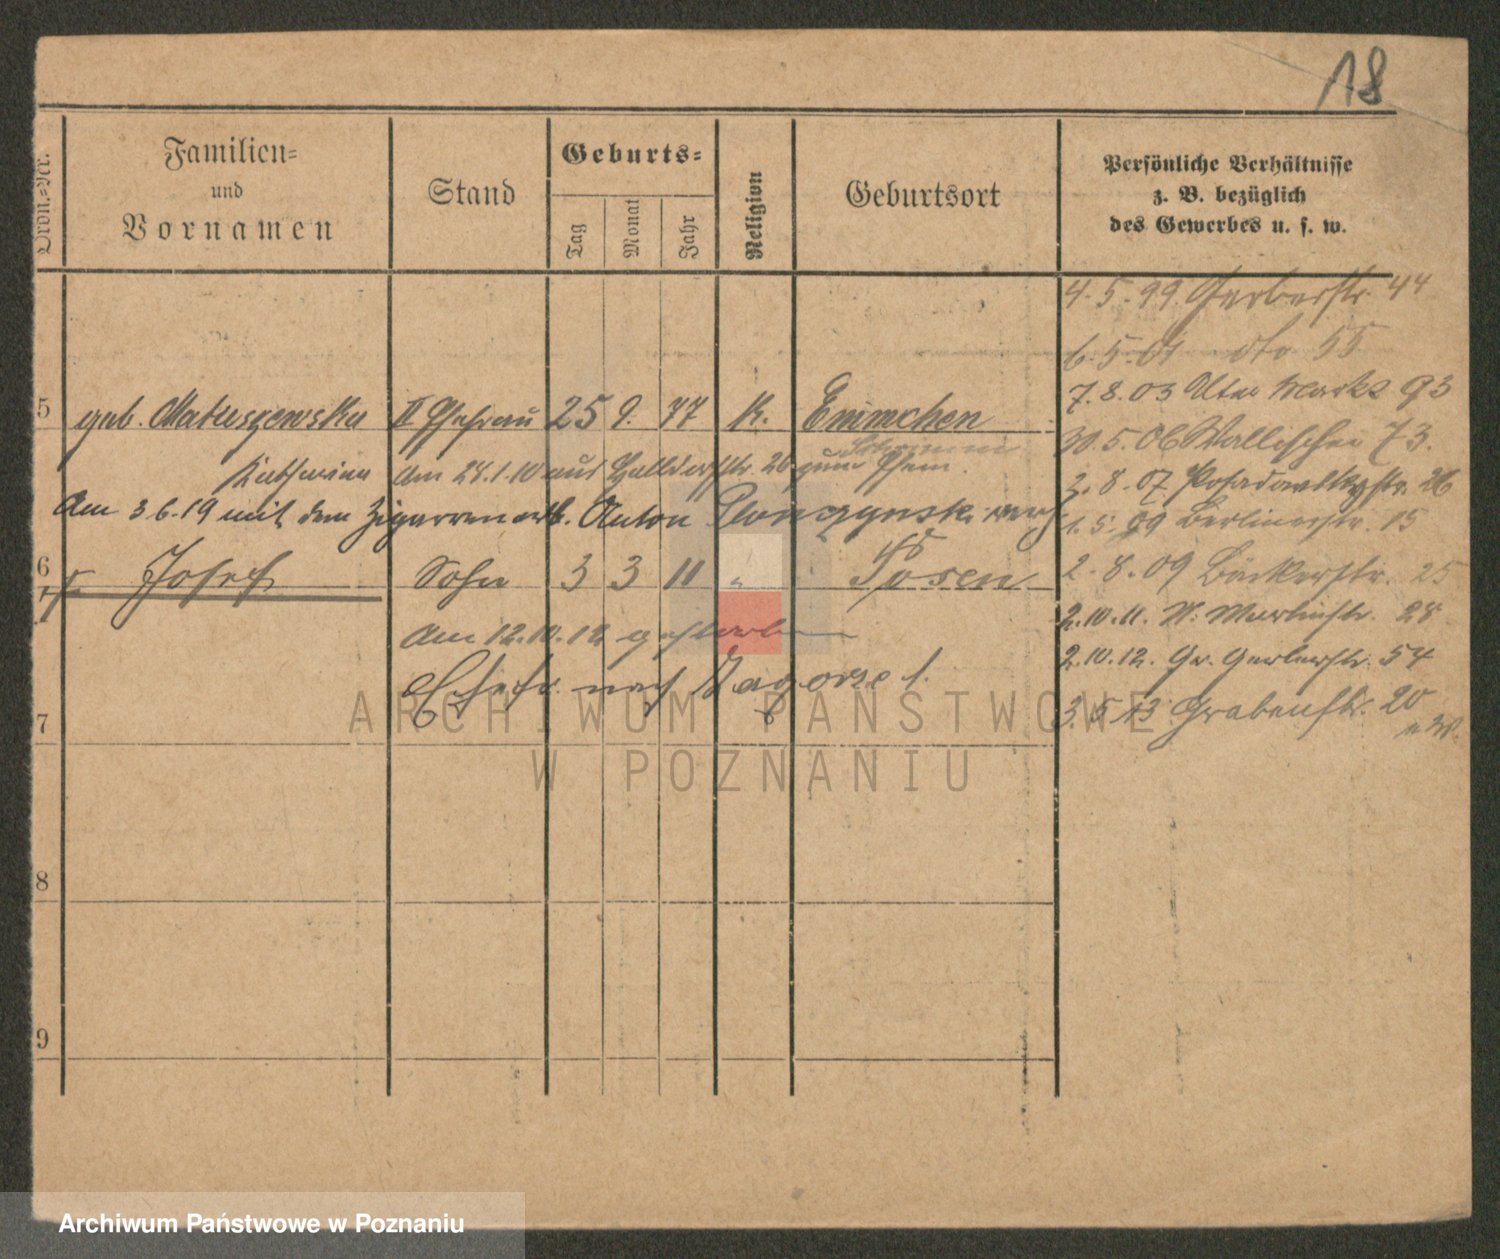 18
Ordn.-Nr.
Familien-
und
Vornamen
Stand
Geburts-
Tag
Monat
Jahr
Religion
Geburtsort
Persönliche Verhältnisse
z. B. bezüglich
des Gewerbes u. s. w.
4.5.99 Gerberstr. 44
6.5.01 dto 55
7.8.03 Alter Markt 93
5 geb. Matuszewska II Ehefrau 25 9. 77 K. Emimchen
30.5.06 Wallischei 73.
Schrimm
Katharina Am 28.1.10 aus 20 zum Ehem.
2.8.07 Posadowskystr. 26
Am 3.6.19 mit dem Zigarrenarb. Anton
1.5.09 Berlinerstr. 15
6 Josef Sohn 3 3 11 " Posen
2.8.09 Bäckerstr. 25
2.10.11. St. Martinstr. 28
Am 12.10.12 gestorben
2.10.12. Gr. Gerberstr. 54
Ehefr. nach Zagorze 1.
3.5.13 Grabenstr. 20
7
8
9
ARCHIWUM PAŃSTWOWE
W POZNANIU
Archiwum Państwowe w Poznaniu